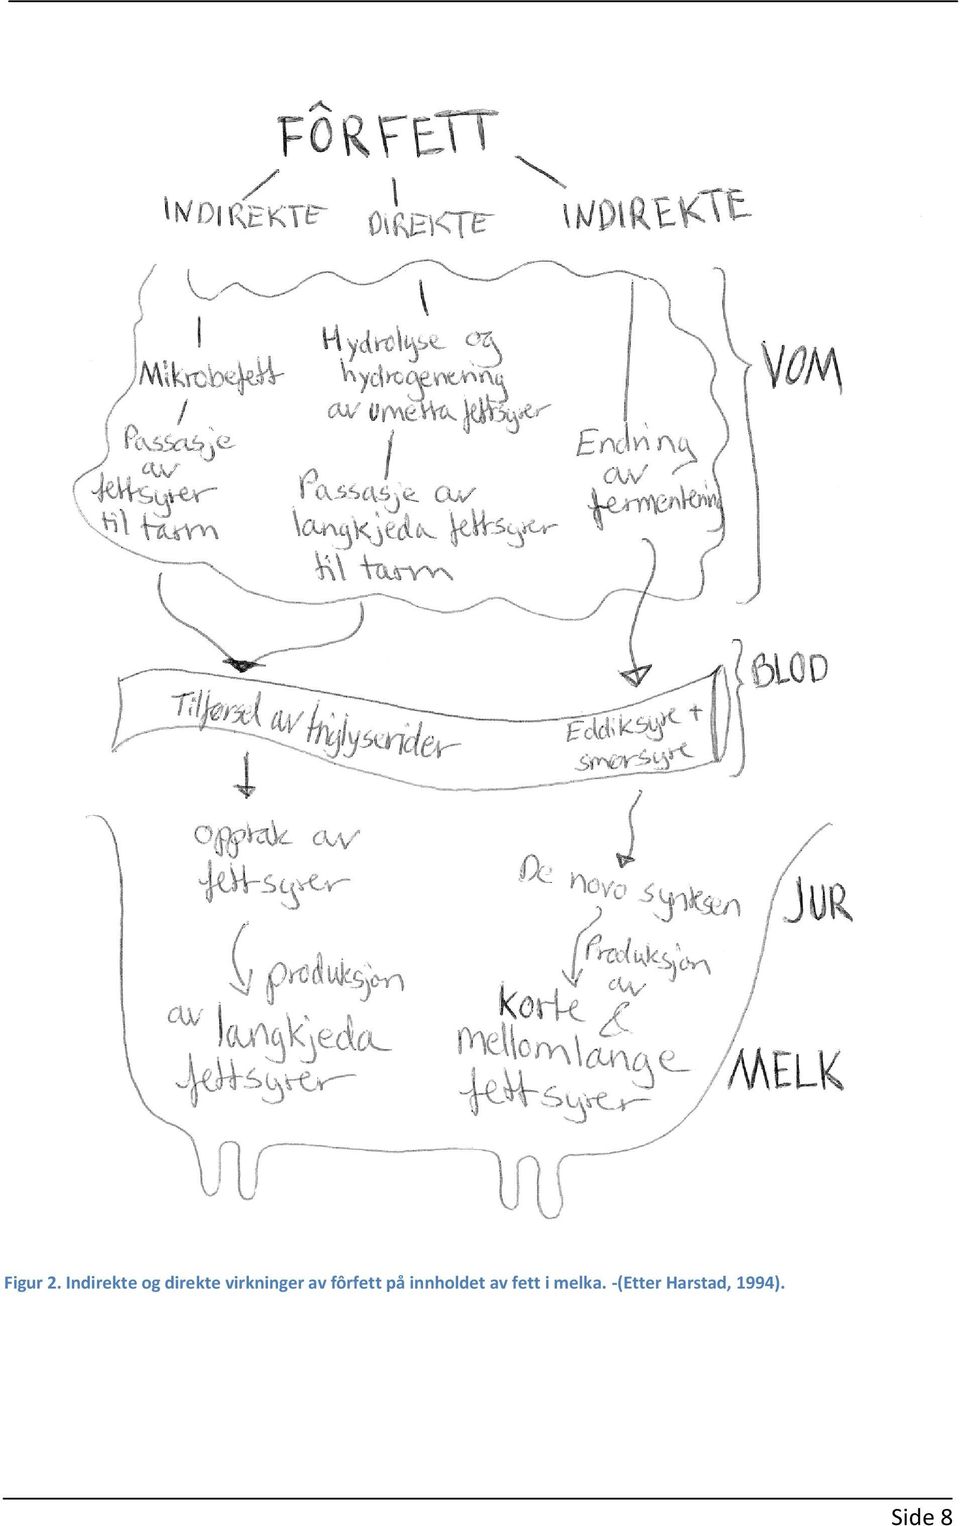 FÔRFETT
INDIREKTE
DIREKTE
INDIREKTE
Mikrobefett
Passasje
av
fettsyrer
til tarm
Hydrolyse og
hydrogenering
av umetta fettsyrer
Passasje av
langkjeda fettsyrer
til tarm
Endring
av
fermentering
VOM
Tilførsel av triglyserider
Eddiksyre +
smørsyre
BLOD
Opptak av
fettsyrer
produksjon
av langkjeda
fettsyrer
De novo syntesen
Produksjon
av
korte &
mellomlange
fettsyrer
JUR
MELK
Figur 2. Indirekte og direkte virkninger av fôrfett på innholdet av fett i melka. -(Etter Harstad, 1994).
Side 8